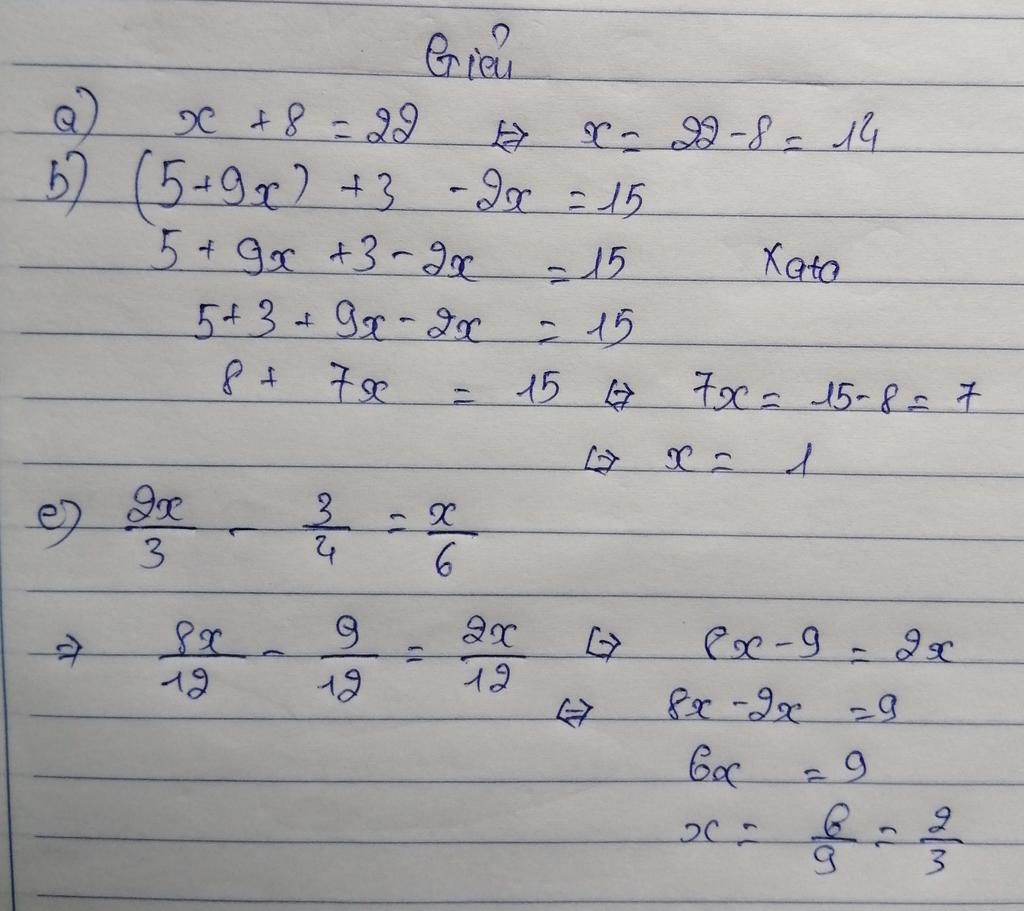 Giải
a) x + 8 = 22 ⇔ x = 22 - 8 = 14
b) (5+9x) + 3 - 2x = 15
5 + 9x + 3 - 2x = 15 Xato
5 + 3 + 9x - 2x = 15
8 + 7x = 15 ⇔ 7x = 15 - 8 = 7
⇔ x = 1
c) 2x/3 - 3/4 = x/6
⇒ 8x/12 - 9/12 = 2x/12 ⇔ 8x - 9 = 2x
⇔ 8x - 2x = 9
6x = 9
x = 6/9 = 2/3